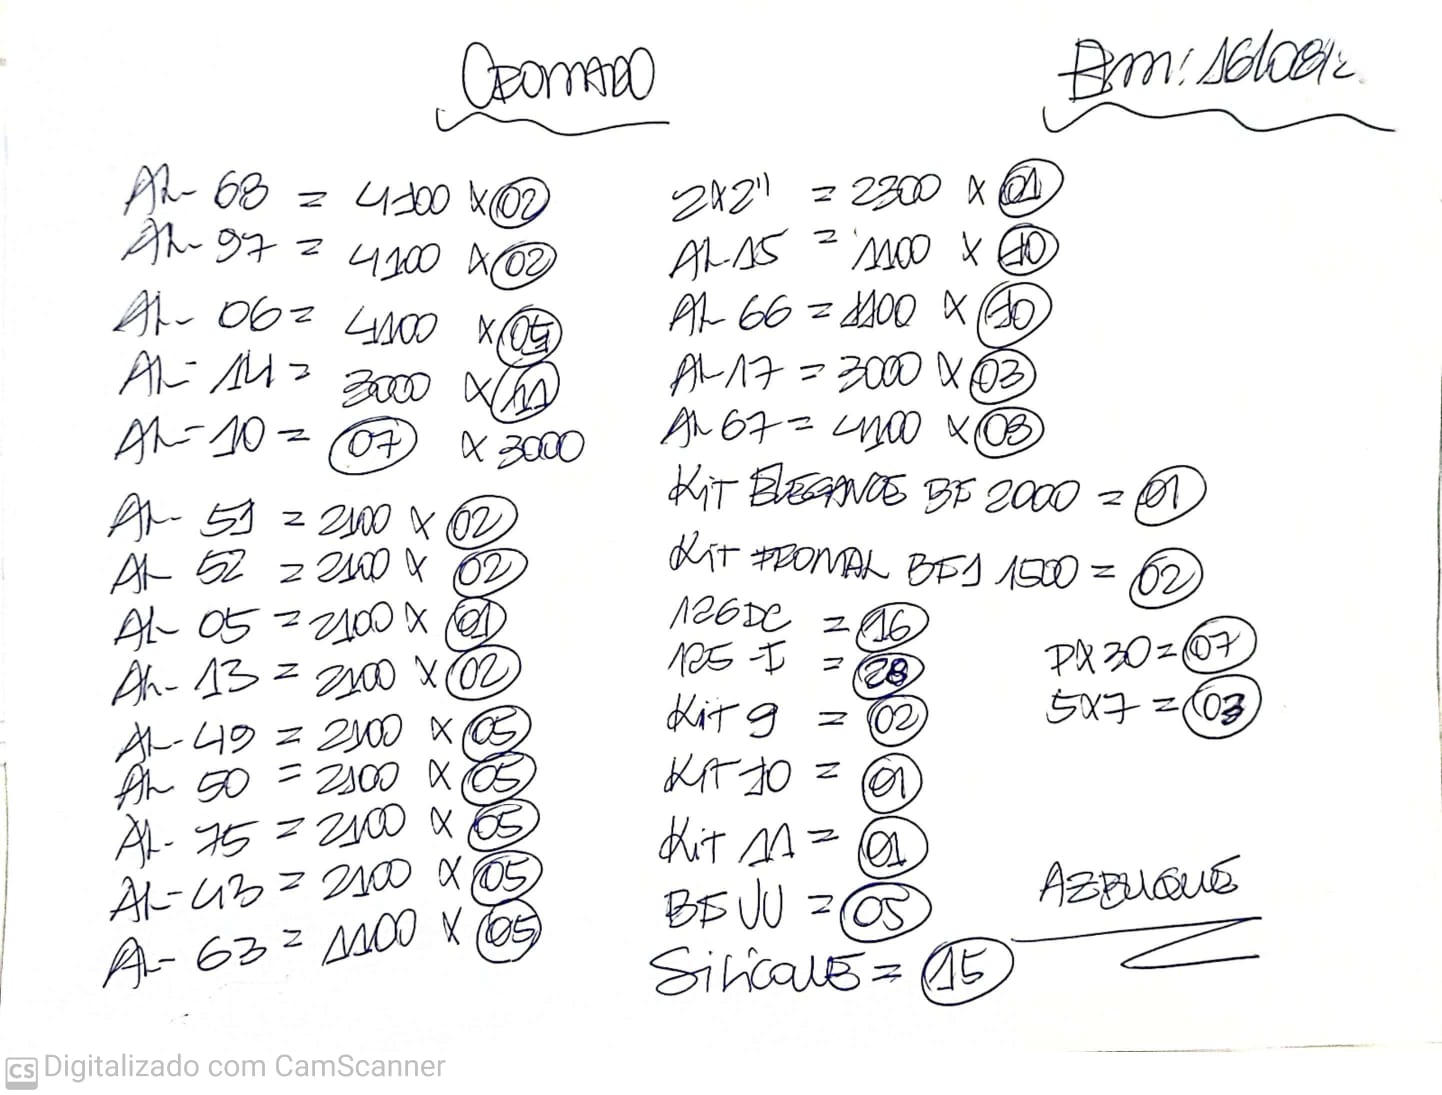 CROMADO
Em: 16/08/2
AL- 68 = 4100 x 02
AL- 97 = 4100 x 02
AL- 06 = 4100 x 05
AL- 14 = 3000 x 11
AL- 10 = 07 x 3000
AL- 51 = 2100 x 02
AL 52 = 2100 x 02
AL- 05 = 2100 x 01
AL- 13 = 2100 x 02
AL- 49 = 2100 x 05
AL 50 = 2100 x 05
AL- 75 = 2100 x 05
AL- 43 = 2100 x 05
AL- 63 = 1100 x 05
2x2" = 2300 x 01
AL-15 = 1100 x 10
AL 66 = 1100 x 10
AL-17 = 3000 x 03
AL 67 = 4100 x 03
Kit ELEGANCE BF 2000 = 01
Kit FRONTAL BF1 1500 = 02
126DC = 16
125-I = 28
Kit 9 = 02
Kit 10 = 01
Kit 11 = 01
BF JU = 05
SiliCONE = 15
PX30 = 07
5x7 = 03
CS Digitalizado com CamScanner